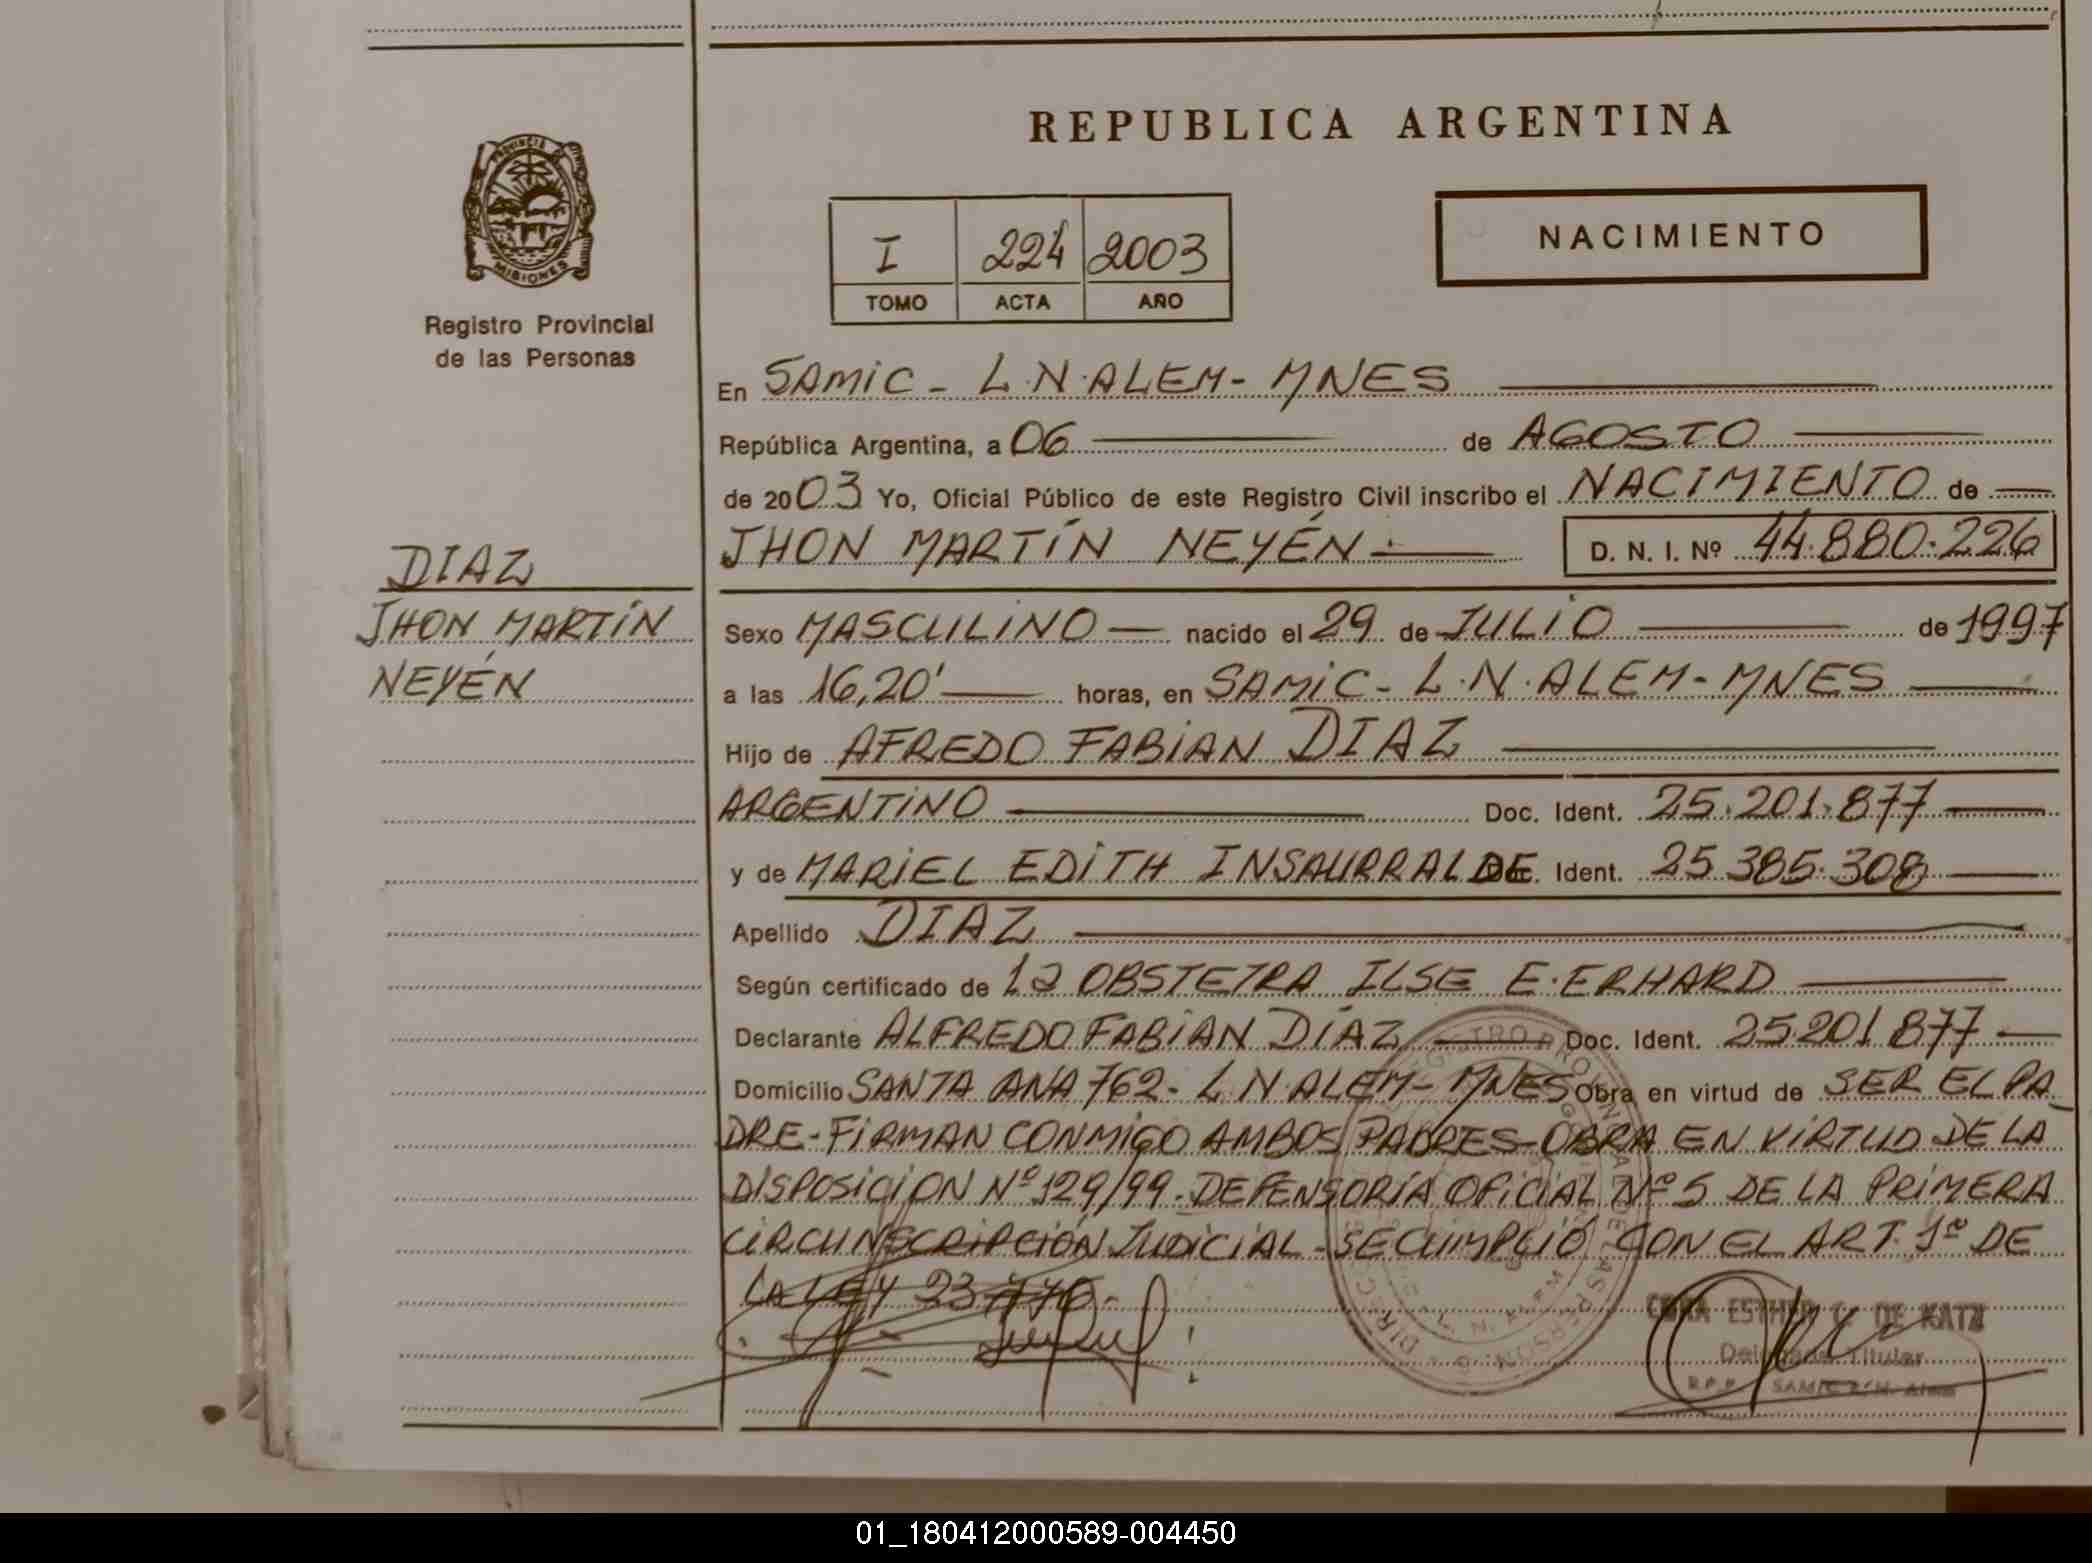 REPUBLICA ARGENTINA
PROVINCIA DE
MISIONES
Registro Provincial
de las Personas
I 224 2003
TOMO ACTA AÑO
NACIMIENTO
En SAMIC - L.N.ALEM - MNES
República Argentina, a 06 de AGOSTO
de 2003 Yo, Oficial Público de este Registro Civil inscribo el NACIMIENTO de
JHON MARTÍN NEYÉN.- D. N. I. Nº 44.880.226
DIAZ
JHON MARTÍN
NEYÉN
Sexo MASCULINO nacido el 29 de JULIO de 1997
a las 16,20' horas, en SAMIC - L.N.ALEM - MNES
Hijo de AFREDO FABIAN DIAZ
ARGENTINO Doc. Ident. 25.201.877
y de MARIEL EDITH INSAURRALDE Ident. 25.385.308
Apellido DIAZ
Según certificado de la OBSTETRA ILSE E. ERHARD
Declarante ALFREDO FABIAN DÍAZ Doc. Ident. 25.201.877
Domicilio SANTA ANA 762 - L N ALEM - MNES Obra en virtud de SER EL PA-
DRE - FIRMAN CONMIGO AMBOS PADRES - OBRA EN VIRTUD DE LA
DISPOSICION Nº 129/99 - DEFENSORÍA OFICIAL Nº 5 DE LA PRIMERA
CIRCUNSCRIPCIÓN JUDICIAL - SE CUMPLIÓ CON EL ART. 1º DE
LA LEY 23.776.-
ESTHER C. DE KATZ
Delegada Titular
R.P.P. SAMIC L.N. Alem
01_180412000589-004450